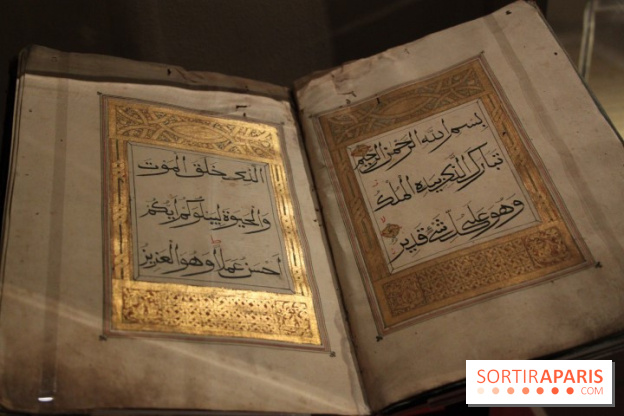 بسم الله الرحمن الرحيم
تبارك الذي بيده الملك
وهو على كل شيء قدير
الذي خلق الموت
والحيوة ليبلوكم أيكم
أحسن عملا وهو العزيز
SORTIRAPARIS
.COM